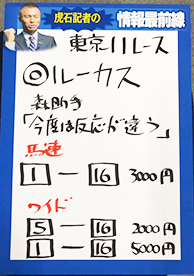 虎石記者の
情報最前線
東京11レース
◎ルーカス
森助手
「今度は反応が違う」
馬連
1 ― 16 3000円
ワイド
5 ― 16 2000円
1 ― 16 5000円